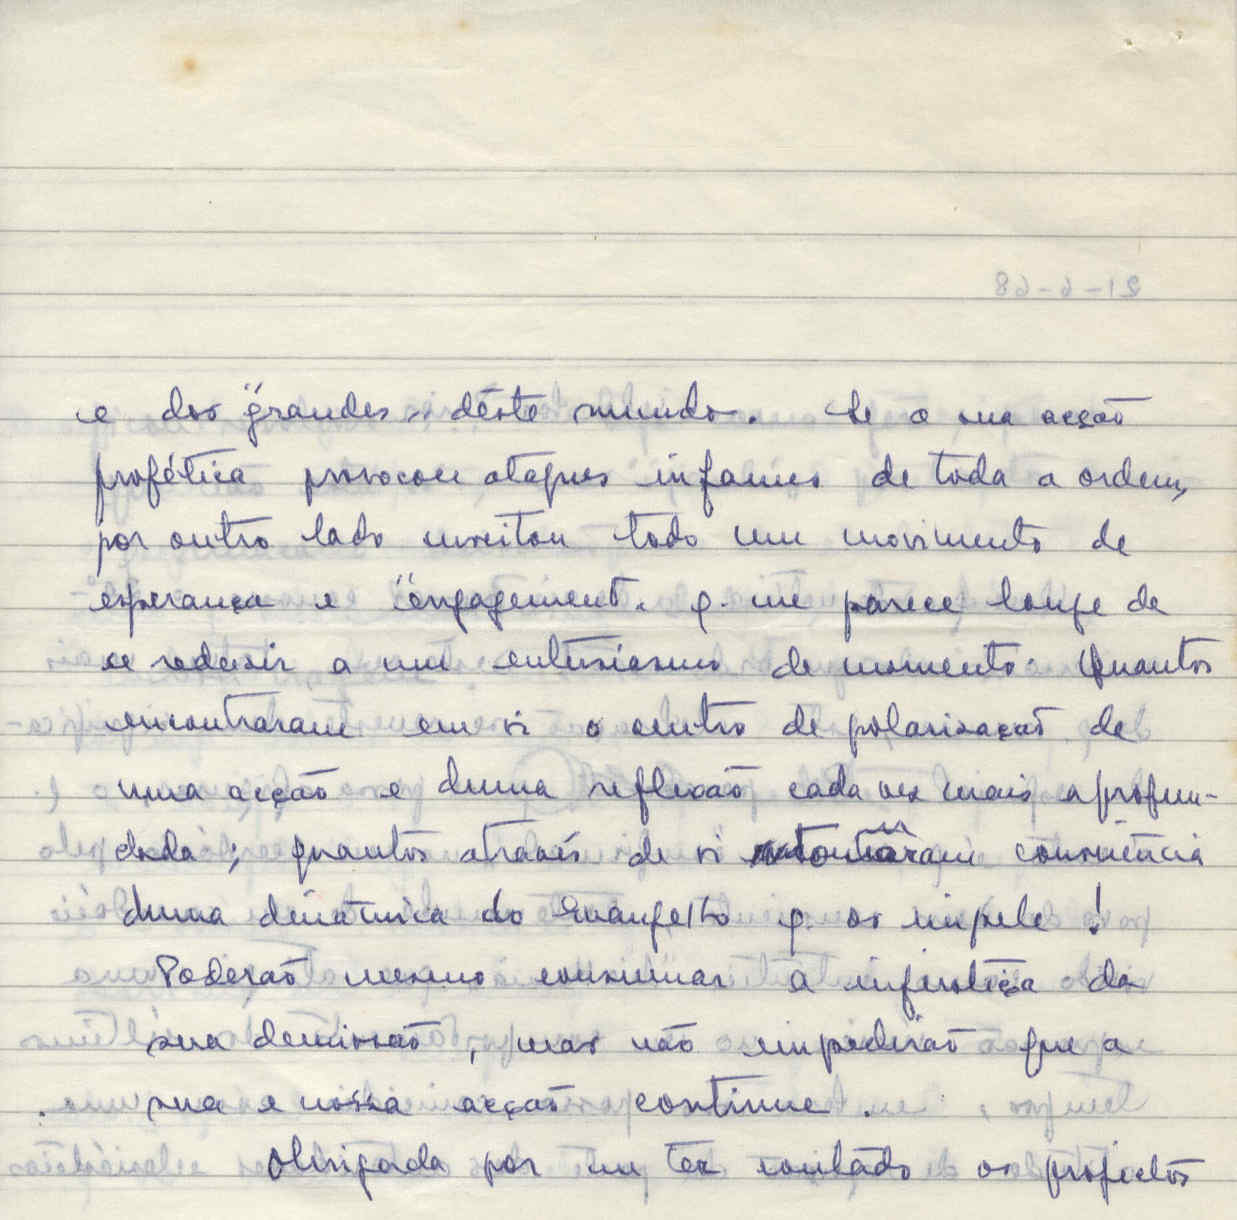 e dos "grandes" dêste mundo. Se a sua acção
profética provocou ataques infames de toda a ordem,
por outro lado suscitou todo um movimento de
esperança e "engagement" q. me parece longe de
se reduzir a um entusiasmo de momento. Quantos
encontraram em si o centro de polarização de
uma acção e duma reflexão cada vez mais aprofun-
dada; quantos através de si tomaram consciência
duma dinâmica do Evangelho q. os impele!
Poderão mesmo consumar a injustiça da
sua demissão, mas não impedirão que a
sua e nossa acção continue.
Obrigada por me ter contado os projectos